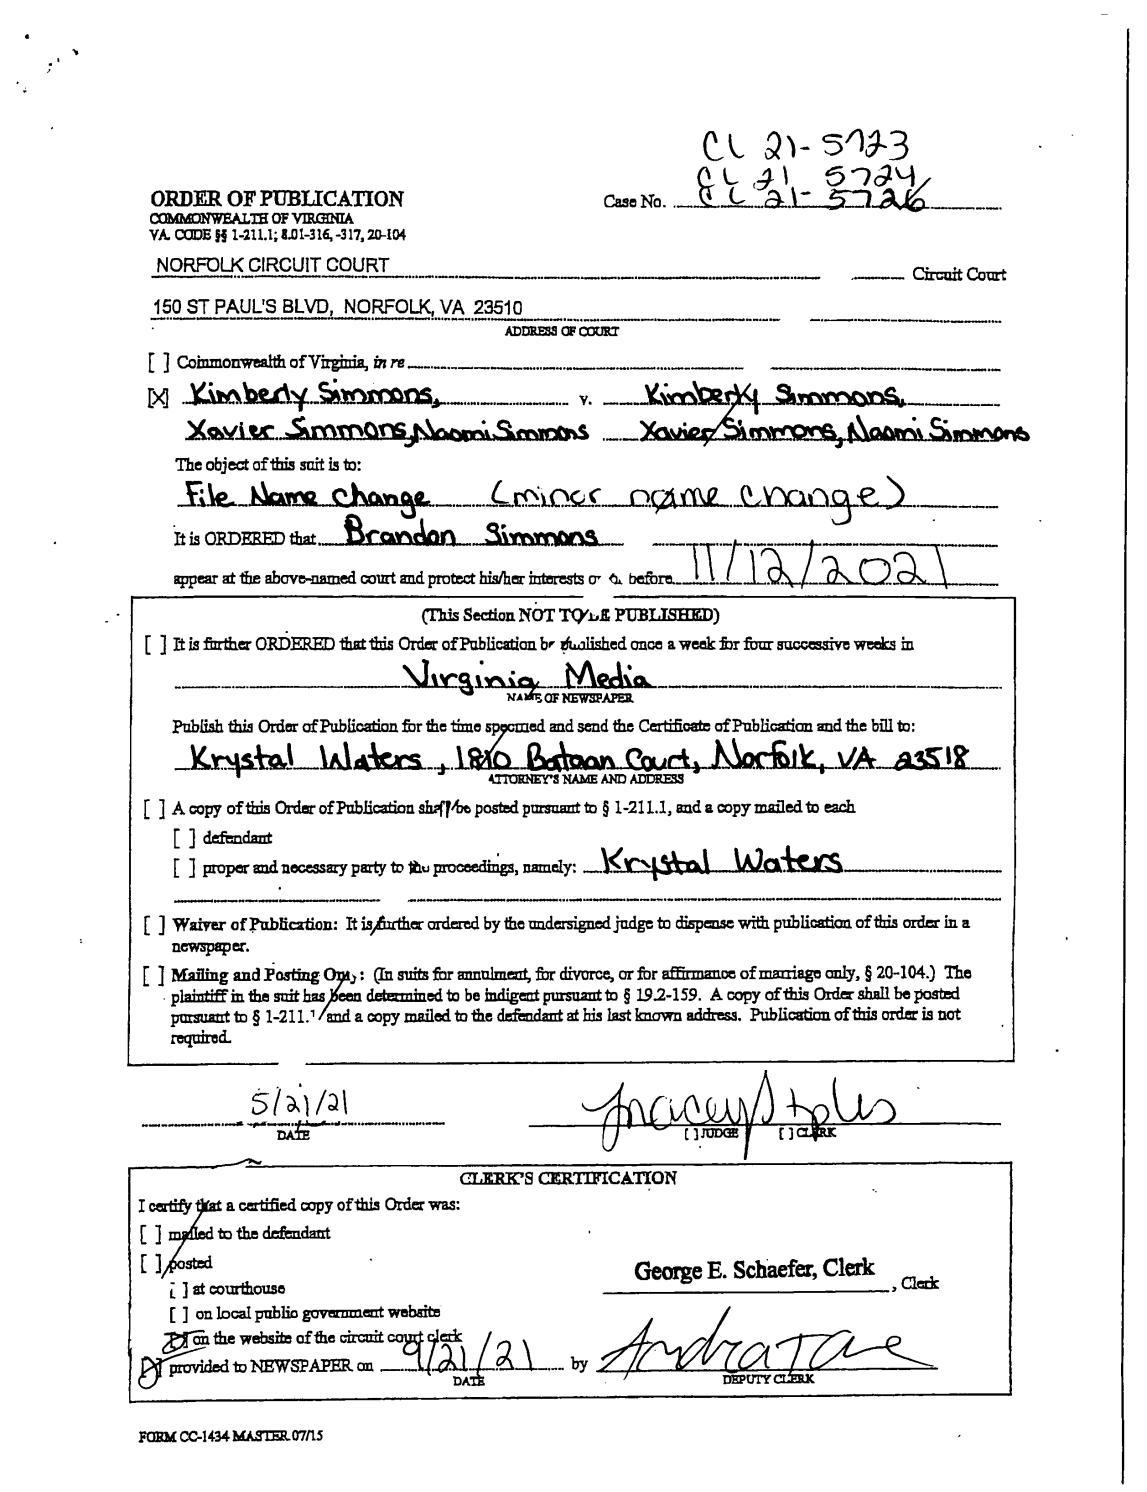 CL 21-5723
CL 21 5724
ORDER OF PUBLICATION
Case No. CL 21-5726
COMMONWEALTH OF VIRGINIA
VA. CODE §§ 1-211.1; 8.01-316, -317, 20-104
NORFOLK CIRCUIT COURT Circuit Court
150 ST PAUL'S BLVD, NORFOLK, VA 23510
ADDRESS OF COURT
[ ] Commonwealth of Virginia, in re
[X] Kimberly Simmons, v. Kimberly Simmons,
Xavier Simmons, Naomi Simmons Xavier Simmons, Naomi Simmons
The object of this suit is to:
File Name Change (minor name change)
It is ORDERED that Brandon Simmons
appear at the above-named court and protect his/her interests or before 11/12/2021
(This Section NOT TO BE PUBLISHED)
[ ] It is further ORDERED that this Order of Publication be published once a week for four successive weeks in
Virginia Media
NAME OF NEWSPAPER
Publish this Order of Publication for the time specified and send the Certificate of Publication and the bill to:
Krystal Waters, 1810 Bataan Court, Norfolk, VA 23518
ATTORNEY'S NAME AND ADDRESS
[ ] A copy of this Order of Publication shall be posted pursuant to § 1-211.1, and a copy mailed to each
[ ] defendant
[ ] proper and necessary party to the proceedings, namely: Krystal Waters
[ ] Waiver of Publication: It is further ordered by the undersigned judge to dispense with publication of this order in a
newspaper.
[ ] Mailing and Posting Only: (In suits for annulment, for divorce, or for affirmance of marriage only, § 20-104.) The
plaintiff in the suit has been determined to be indigent pursuant to § 19.2-159. A copy of this Order shall be posted
pursuant to § 1-211.1 and a copy mailed to the defendant at his last known address. Publication of this order is not
required.
5/21/21 Tracey Stples
DATE [ ] JUDGE [ ] CLERK
CLERK'S CERTIFICATION
I certify that a certified copy of this Order was:
[ ] mailed to the defendant
[ ] posted
George E. Schaefer, Clerk , Clerk
[ ] at courthouse
[ ] on local public government website
[X] on the website of the circuit court clerk
[X] provided to NEWSPAPER on 9/21/21 by
DATE DEPUTY CLERK
FORM CC-1434 MASTER 07/15